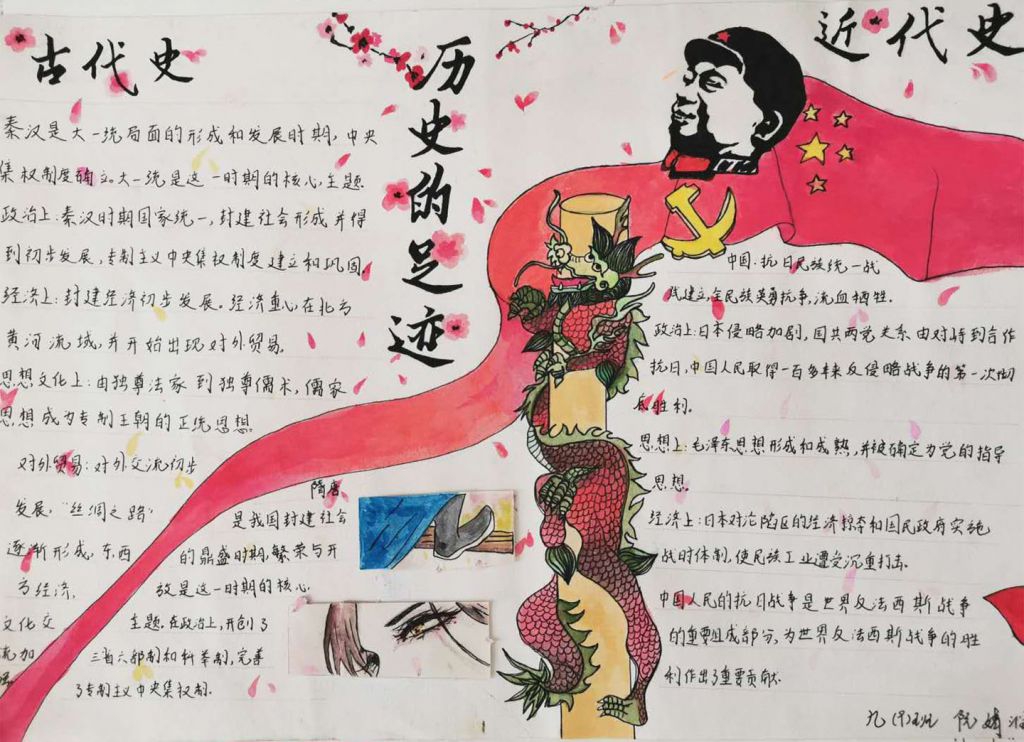 古代史
秦汉是大一统局面的形成和发展时期，中央
集权制度确立。大一统是这一时期的核心，主题.
政治上：秦汉时期国家统一，封建社会形成并得
到初步发展，专制主义中央集权制度建立和巩固。
经济上：封建经济初步发展。经济重心在北方
黄河流域，并开始出现对外贸易。
思想文化上：由独尊法家到独尊儒术，儒家
思想成为专制王朝的正统思想
对外贸易：对外交流初步
发展，“丝绸之路”
逐渐形成，东西
方经济，
文化交
流加
隋唐
是我国封建社会
的鼎盛时期，繁荣与开
放是这一时期的核心
主题.在政治上，开创了
三省六部制和科举制，完善
了专制主义中央集权制.
历史的足迹
近代史
中国：抗日民族统一战
建立，全民族英勇抗争，流血牺牲.
政治上：日本侵略加剧，国共两党关系由对峙到合作
抗日，中国人民取得一百多年来反侵略战争的第一次彻
底胜利。
思想上：毛泽东思想形成和成熟，并被确定为党的指导
思想。
经济上：日本对沦陷区的经济掠夺和国民政府实施
战时体制，使民族工业遭受沉重打击.
中国人民的抗日战争是世界反法西斯战争
的重要组成部分，为世界反法西斯战争的胜
利作出了重要贡献.